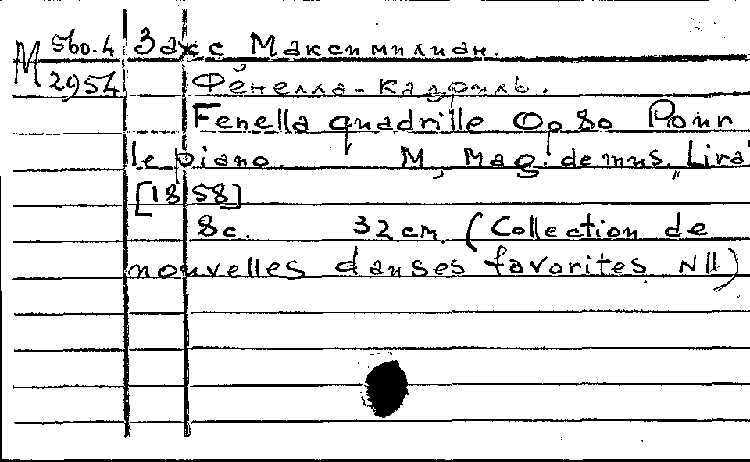 М 560.4 Закс, Максимилиан.
2954 Фенелла-кадриль.
Fenella quadrille Op 80 Pour
le piano. М, Mag. de mus. „Lira"
[1858]
8с. 32 см. (Collection de
nouvelles danses favorites N11)